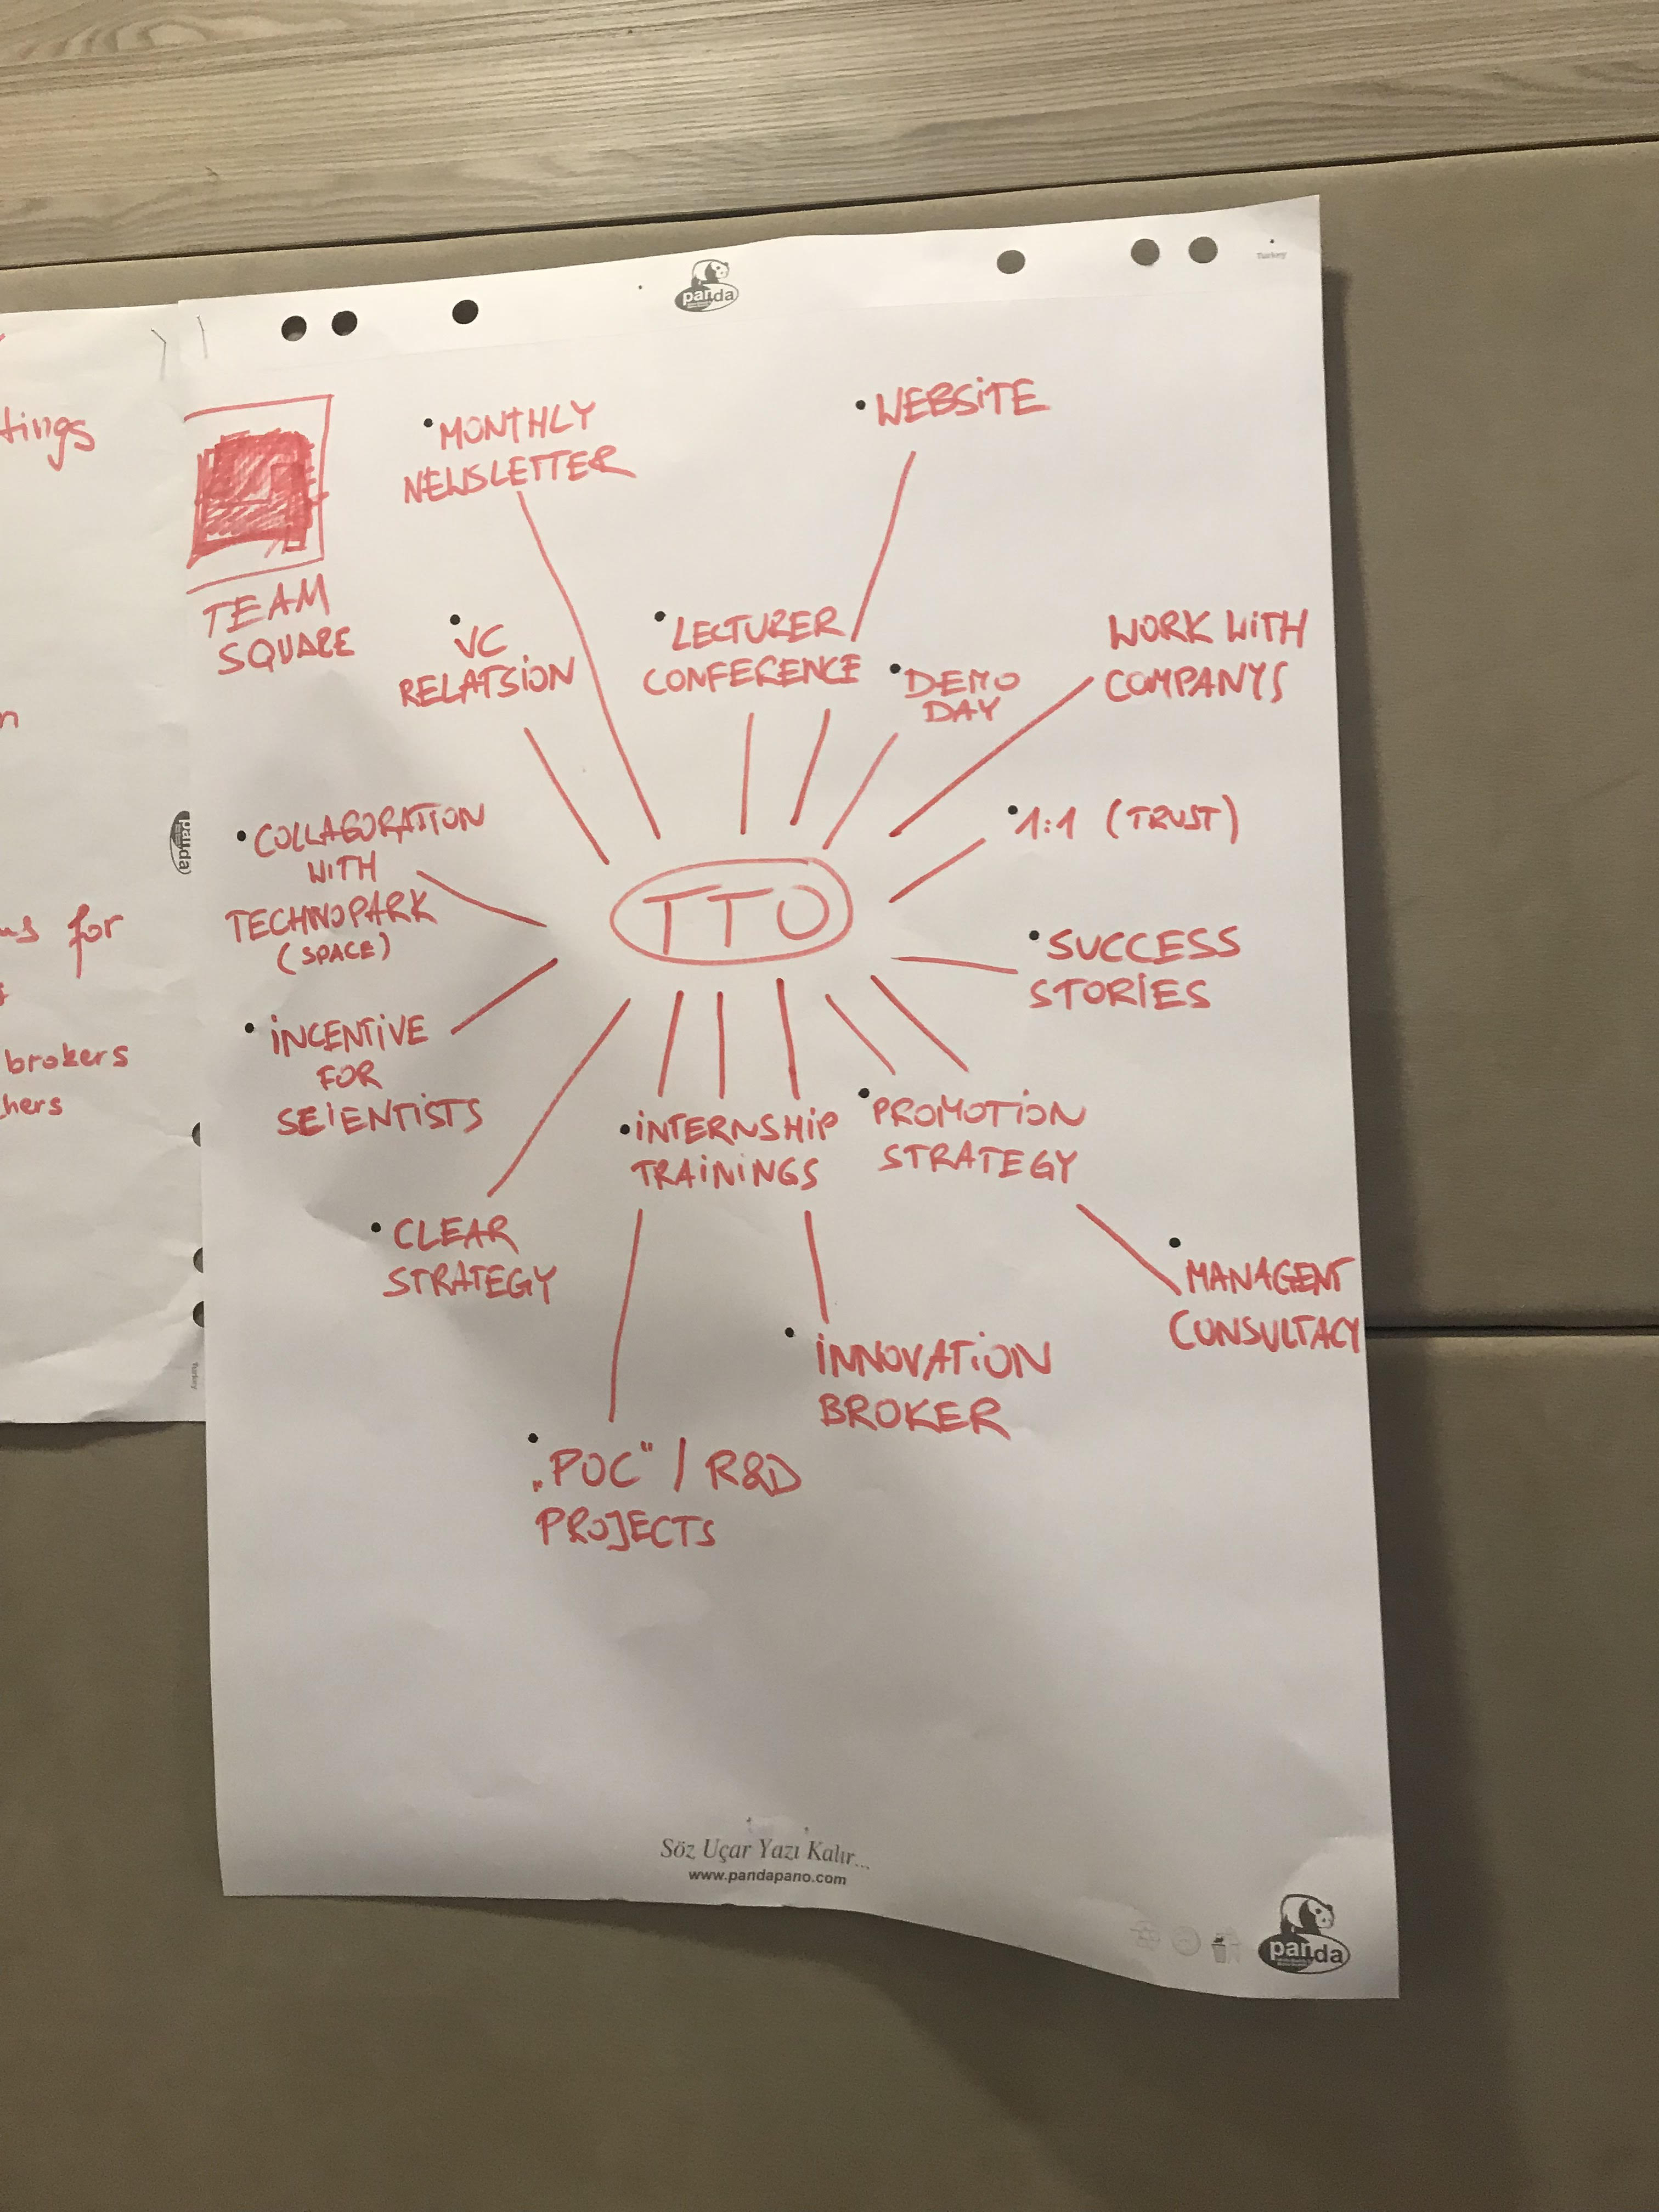 panda
Turkey
tings
n
for
brokers
hers
panda
Turkey
TEAM
SQUARE
• MONTHLY
NEWSLETTER
• WEBSITE
• VC
RELATSION
• LECTURER
CONFERENCE
• DEMO
DAY
WORK WITH
COMPANYS
• COLLABORATION
WITH
TECHNOPARK
(SPACE)
• 1:1 (TRUST)
TTO
• SUCCESS
STORIES
• INCENTIVE
FOR
SEIENTISTS
• INTERNSHIP
TRAININGS
• PROMOTION
STRATEGY
• CLEAR
STRATEGY
• MANAGENT
CONSULTACY
• INNOVATION
BROKER
• „POC“ / R&D
PROJECTS
Söz Uçar Yazı Kalır...
www.pandapano.com
panda